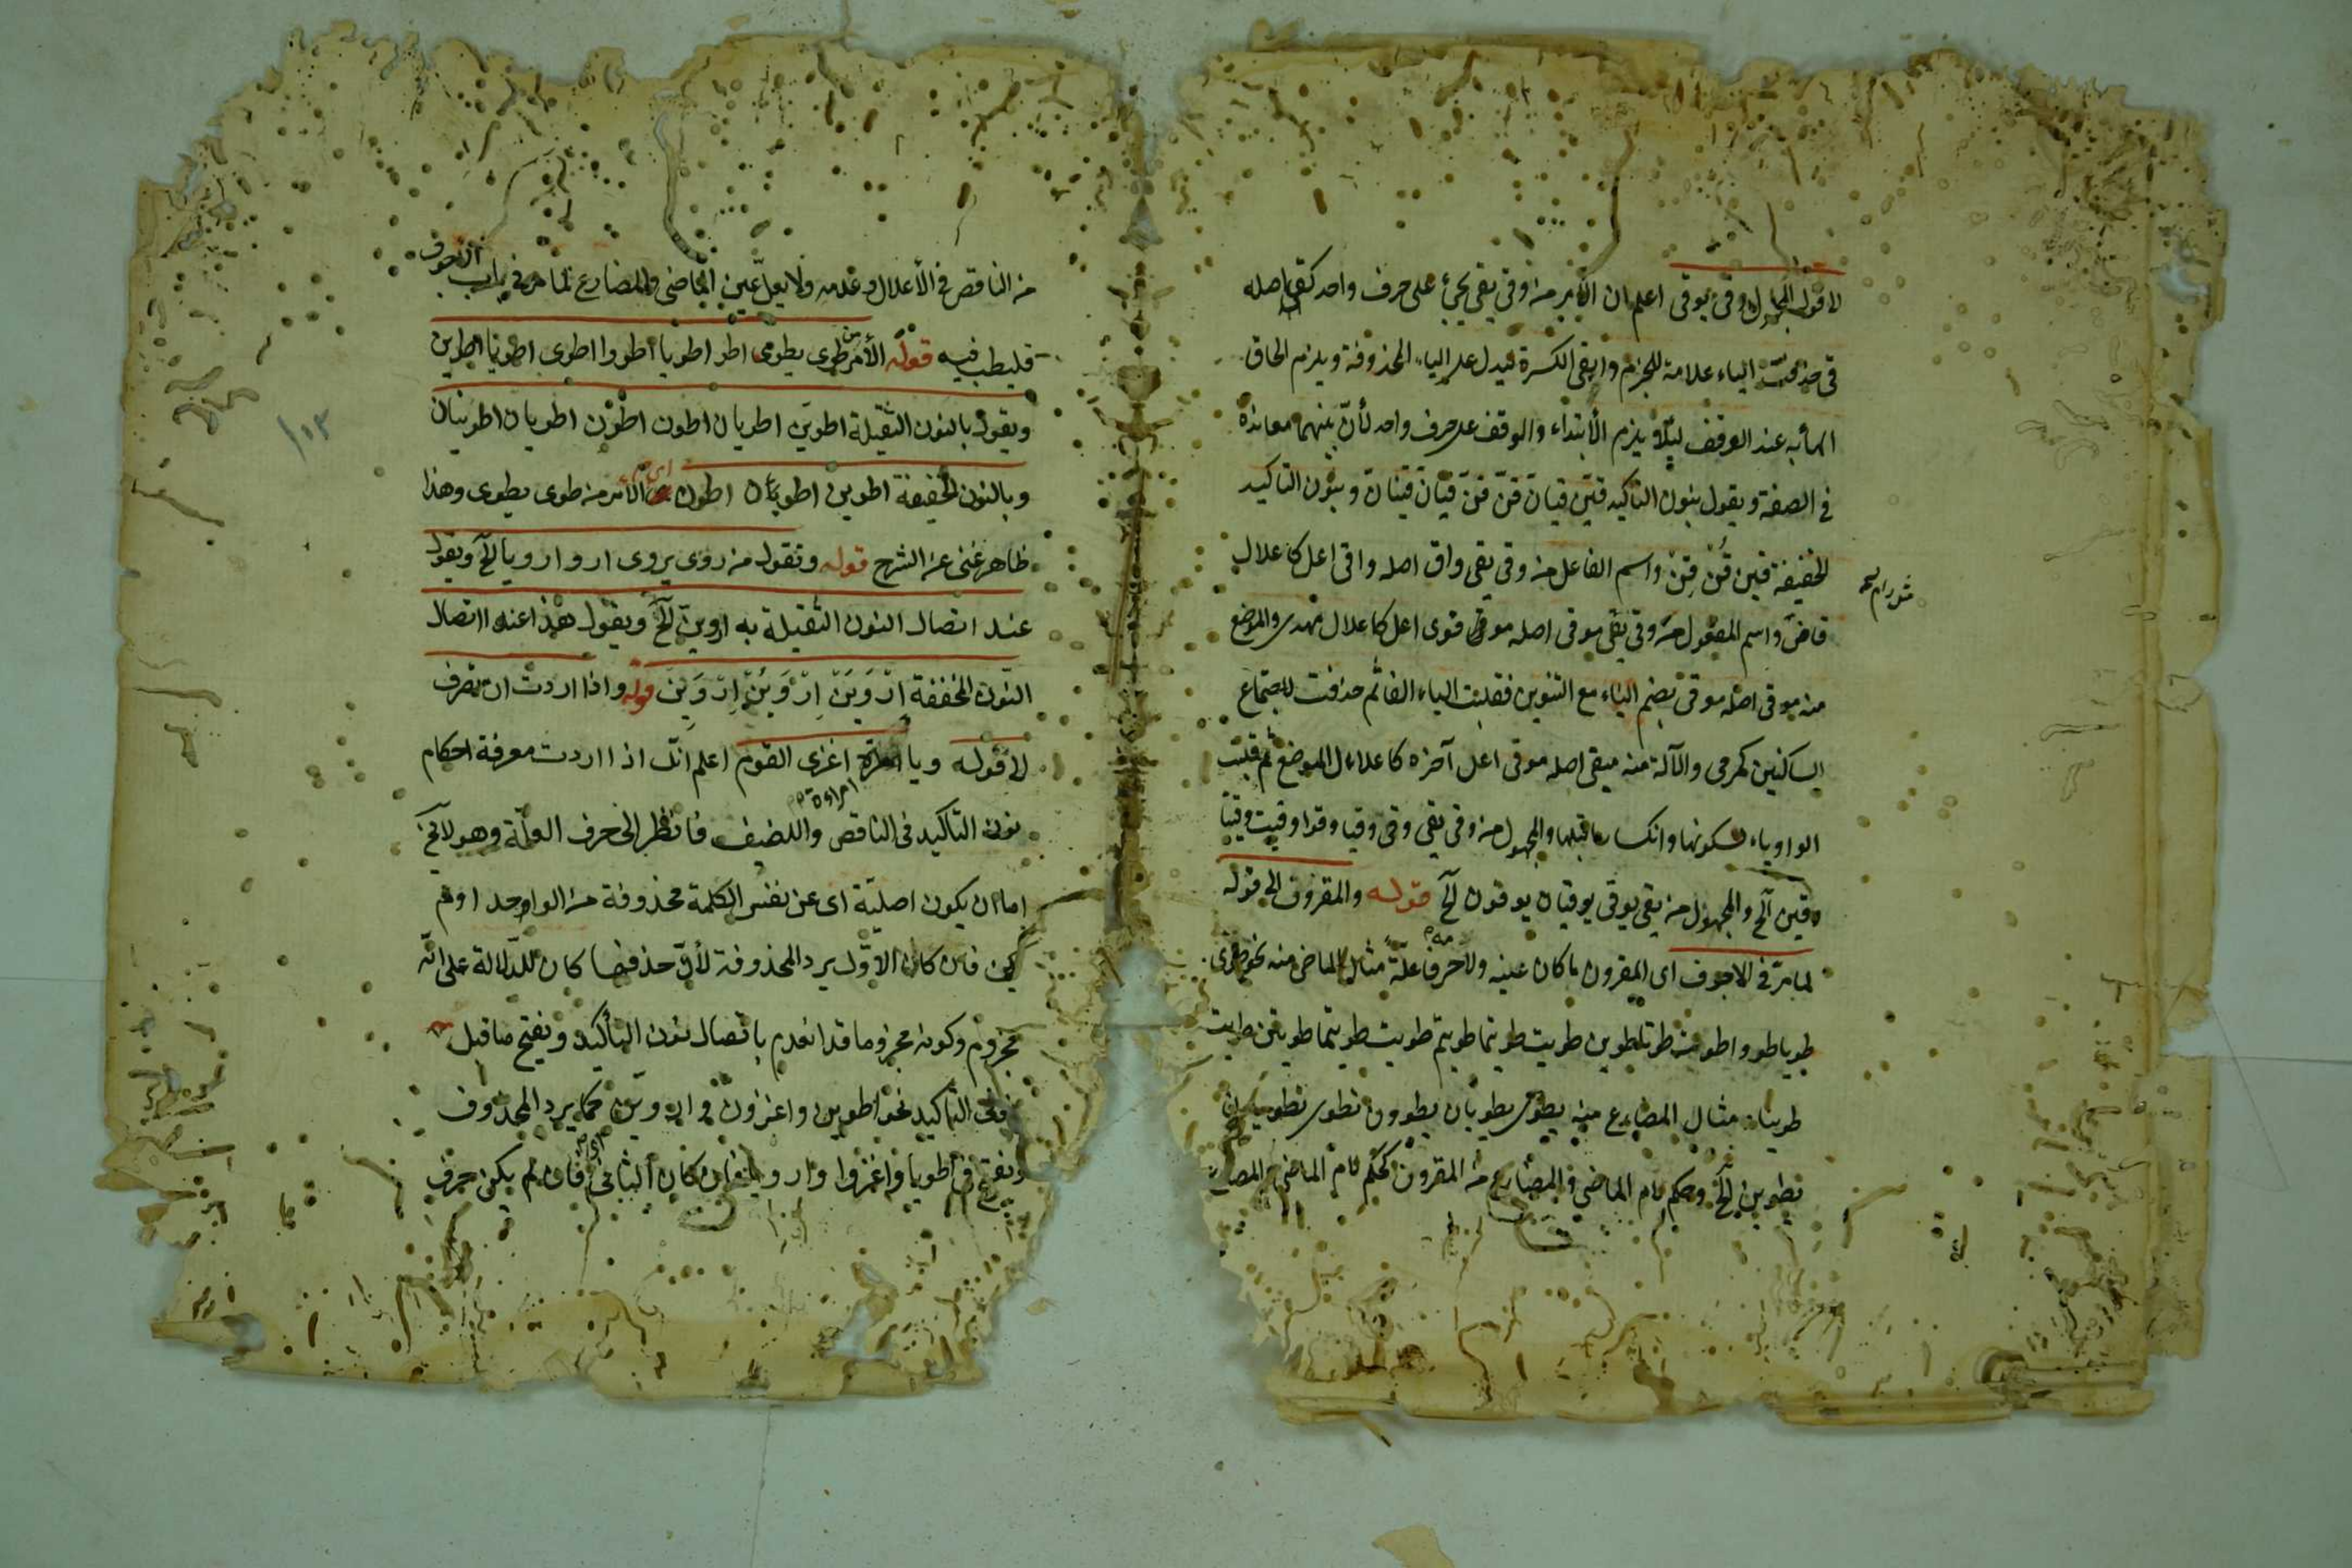 لا قوله المجهول وقى يوقى اعلم ان الأمر من وقى يقى يجئ على حرف واحد كقى اصله
قى حذفت الياء علامة للجزم وابقى الكسرة ليدل على الياء المحذوفة ويلزم الحاق
الهاء به عند الوقف ليلا يلزم الأبتداء والوقف على حرف واحد لأن بينهما معاندة
فى الصفة ويقول بنون التاكيد قين قيان قن قن قيان قينان وبنون التاكيد
الخفيفة قين قن قن واسم الفاعل من وقى يقى واق اصله واقى اعل كاعلال
قاض واسم المفعول من وقى يقى موقى اصله موقوى اعل كاعلال مهدى والموضع
منه موقى اصله موقى بضم الياء مع التنوين فقلبت الياء الفا ثم حذفت لاجتماع
الساكنين كمرمى والآلة منه ميقى اصله موقى اعل آخره كاعلال الموضع ثم قلبت
الواو ياء لسكونها وانكسار ماقبلها والمجهول من وقى يقى وقى وقيا وقوا وقيت وقيتا
وقين آلخ والمجهول من يقى يوقى يوقيان يوقون آلخ قوله والمقرون الى قوله
لما مر فى الاجوف اى المقرون ما كان عينه ولامه حرفا علة مثال الماضى منه نحو طوى
طويا طووا طوت طوتا طوين طويت طويتما طويتم طويت طويتما طويتن طويت
طوينا مثال المضارع منه يطوى يطويان يطوون تطوى تطويان
تطوين آلخ وحكم لام الماضى والمضارع من المقرون كحكم لام الماضى والمضارع
من الناقص فى الأعلال وعدمه ولا يعل عين الماضى والمضارع لما مر فى باب الاجوف
فليطلب فيه قوله الأمر من طوى يطوى اطو اطويا اطووا اطوى اطويا اطوين
ويقول بالنون الثقيلة اطوين اطويان اطون اطون اطويان اطوينان
وبالنون الخفيفة اطوين اطون اى الأمر من طوى يطوى وهذا
ظاهر غنى عن الشرح قوله وتقول من روى يروى ارو ارويا آلخ ويقول
عند اتصال النون الثقيلة به اروين آلخ ويقول هذا عند اتصال
النون المخففة اروين اروين اروين قوله واذا اردت ان تعرف
لا قوله ويا امراءة اغزى القوم اعلم انك اذا اردت معرفة احكام
نون التاكيد فى الناقص واللفيف فانظر الى حرف العلة وهو لا يخ
اما ان يكون اصلية اى عن نفس الكلمة محذوفة من الواحد او لم
يكن فان كان الأول يرد المحذوفة لأن حذفها كان للدلالة على انه
مجزوم وكونه مجزوما قد انعدم باتصال نون التأكيد ويفتح ماقبل
نون التاكيد نحو اطوين واغزون واروين كما يرد المحذوف
ويفتح فى اطويا واغزوا وارويا فان كان الثانى اى فان لم يكن حرف